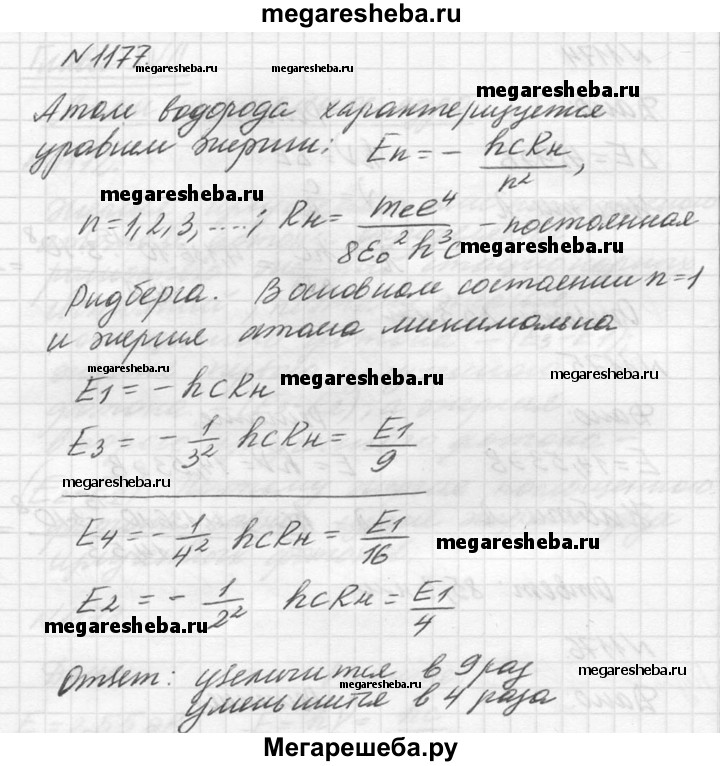 megaresheba.ru
N 1177. megaresheba.ru megaresheba.ru
megaresheba.ru
Атом водорода характеризуется
уравнем энергии: En = - hcRн / n²,
megaresheba.ru
n = 1, 2, 3, ....; Rн = mee⁴ / 8ε₀²h³c - постоянная
megaresheba.ru
Ридберга. В основном состоянии n=1
и энергия атома минимальна
megaresheba.ru
E1 = - hcRн megaresheba.ru megaresheba.ru
E3 = - 1/3² hcRн = E1/9
megaresheba.ru
E4 = - 1/4² hcRн = E1/16 megaresheba.ru
E2 = - 1/2² hcRн = E1/4
megaresheba.ru
Ответ: увеличится в 9 раз megaresheba.ru
megaresheba.ru
уменьшится в 4 раза
Мегарешеба.ру